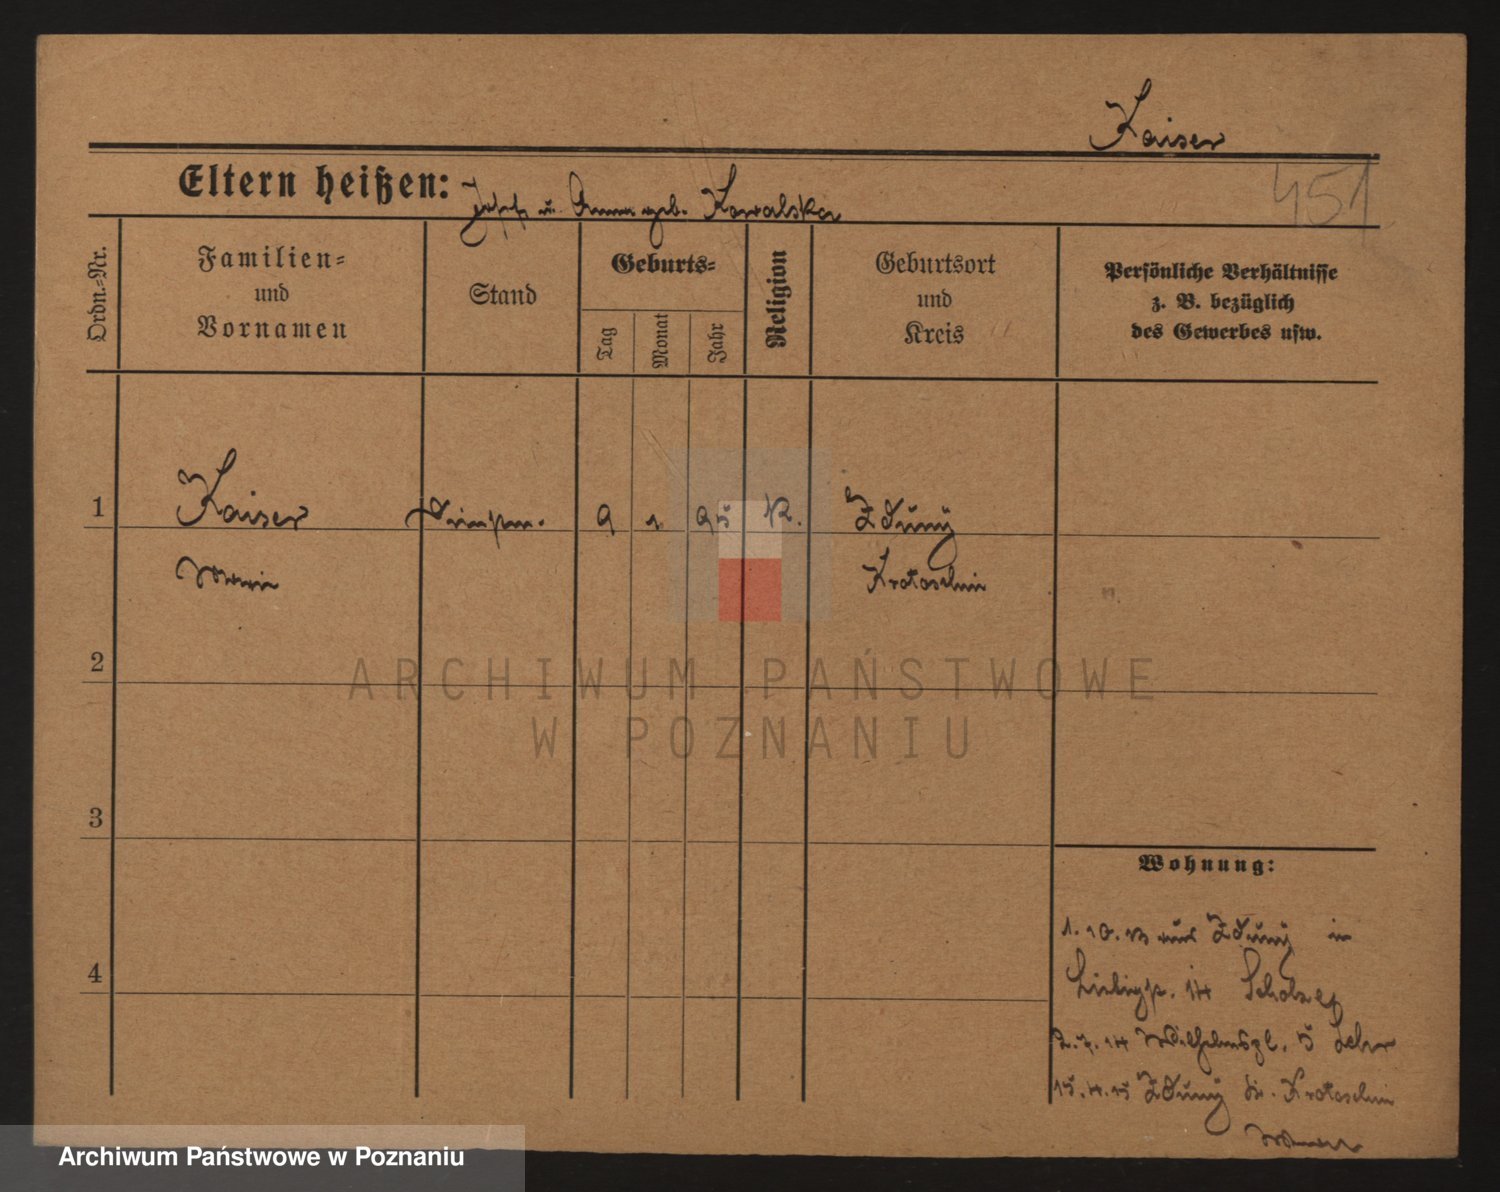 Kaiser
451
Eltern heißen: Josef u. Anna geb. Kowalska
Ordn.-Nr.
Familien-
und
Vornamen
Stand
Geburts-
Tag
Monat
Jahr
Religion
Geburtsort
und
Kreis
Persönliche Verhältnisse
z. B. bezüglich
des Gewerbes usw.
1
Kaiser
9 1 95 K. Zduny
Marie
Krotoschin
2
ARCHIWUM PAŃSTWOWE
W POZNANIU
3
Wohnung:
4
1.10.13 aus Zduny in
14
14 Wilhelmspl. 5
15.4.15 Zduny Kr. Krotoschin
Archiwum Państwowe w Poznaniu